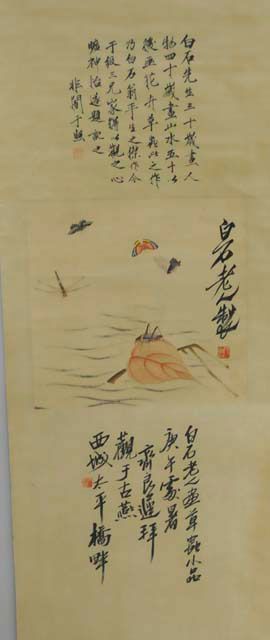 白石先生三十歲畫人
物四十歲畫山水五十以
後畫花卉草蟲此之作
乃白石翁平生之傑作今
于級三兄家得以觀之心
曠神怡遂題記之
非闇于照
白石老人製
白石老人畫草蟲小品
庚午處暑
齊良遲拜
觀于古燕
西城太平橋畔